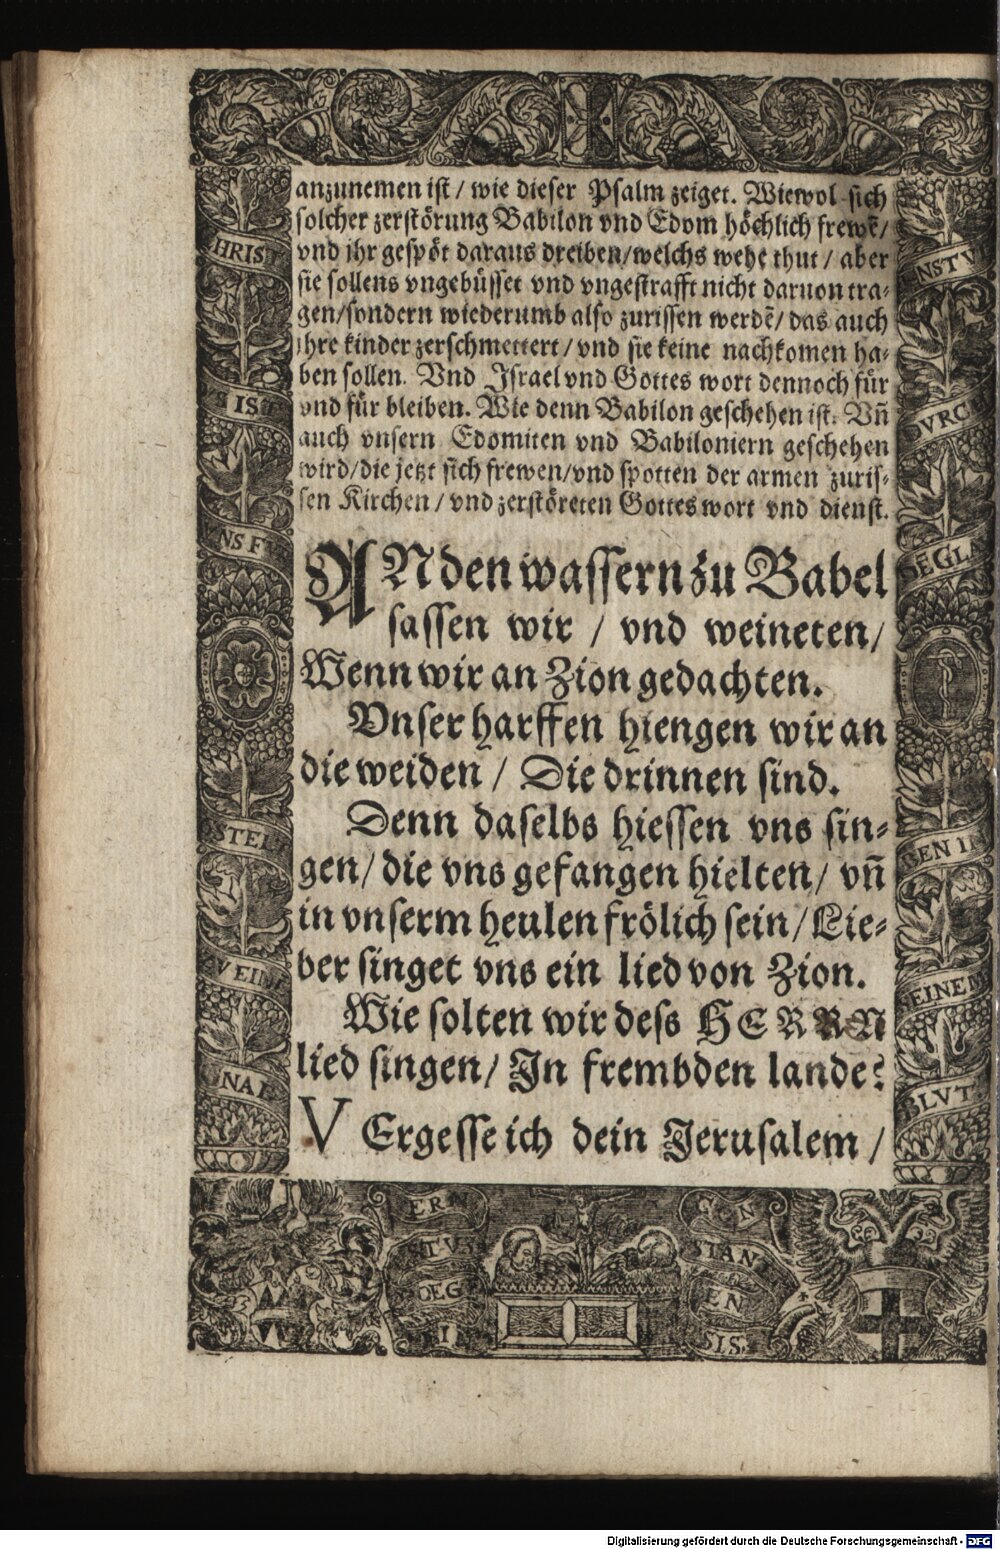 anzunemen ist / wie dieser Psalm zeiget. Wiewol sich
solcher zerstörung Babilon vnd Edom höchlich frewẽ /
vnd ihr gespöt daraus dreiben / welchs wehe thut / aber
sie sollens vngebüsset vnd vngestrafft nicht daruon tra-
gen / sondern wiederumb also zurissen werdẽ / das auch
ihre kinder zerschmettert / vnd sie keine nachkomen ha-
ben sollen. Vnd Israel vnd Gottes wort dennoch für
vnd für bleiben. Wie denn Babilon geschehen ist. Vñ
auch vnsern Edomiten vnd Babiloniern geschehen
wird / die jetzt sich frewen / vnd spotten der armen zuris-
sen Kirchen / vnd zerstöreten Gottes wort vnd dienst.
AN den wassern zu Babel
sassen wir / vnd weineten /
Wenn wir an Zion gedachten.
Vnser harffen hiengen wir an
die weiden / Die drinnen sind.
Denn daselbs hiessen vns sin-
gen / die vns gefangen hielten / vñ
in vnserm heulen frölich sein / Lie-
ber singet vns ein lied von Zion.
Wie solten wir dess HERRN
lied singen / In frembden lande?
VErgesse ich dein Jerusalem /
HRIS
IS
NS F
STEL
V EIN
NAD
NSTV
VRCH
EGLA
EN IN
EINEM
BLVT
ERN
STVS
DEG
I
CON
STAN
EN
SIS.
Digitalisierung gefördert durch die Deutsche Forschungsgemeinschaft - DFG